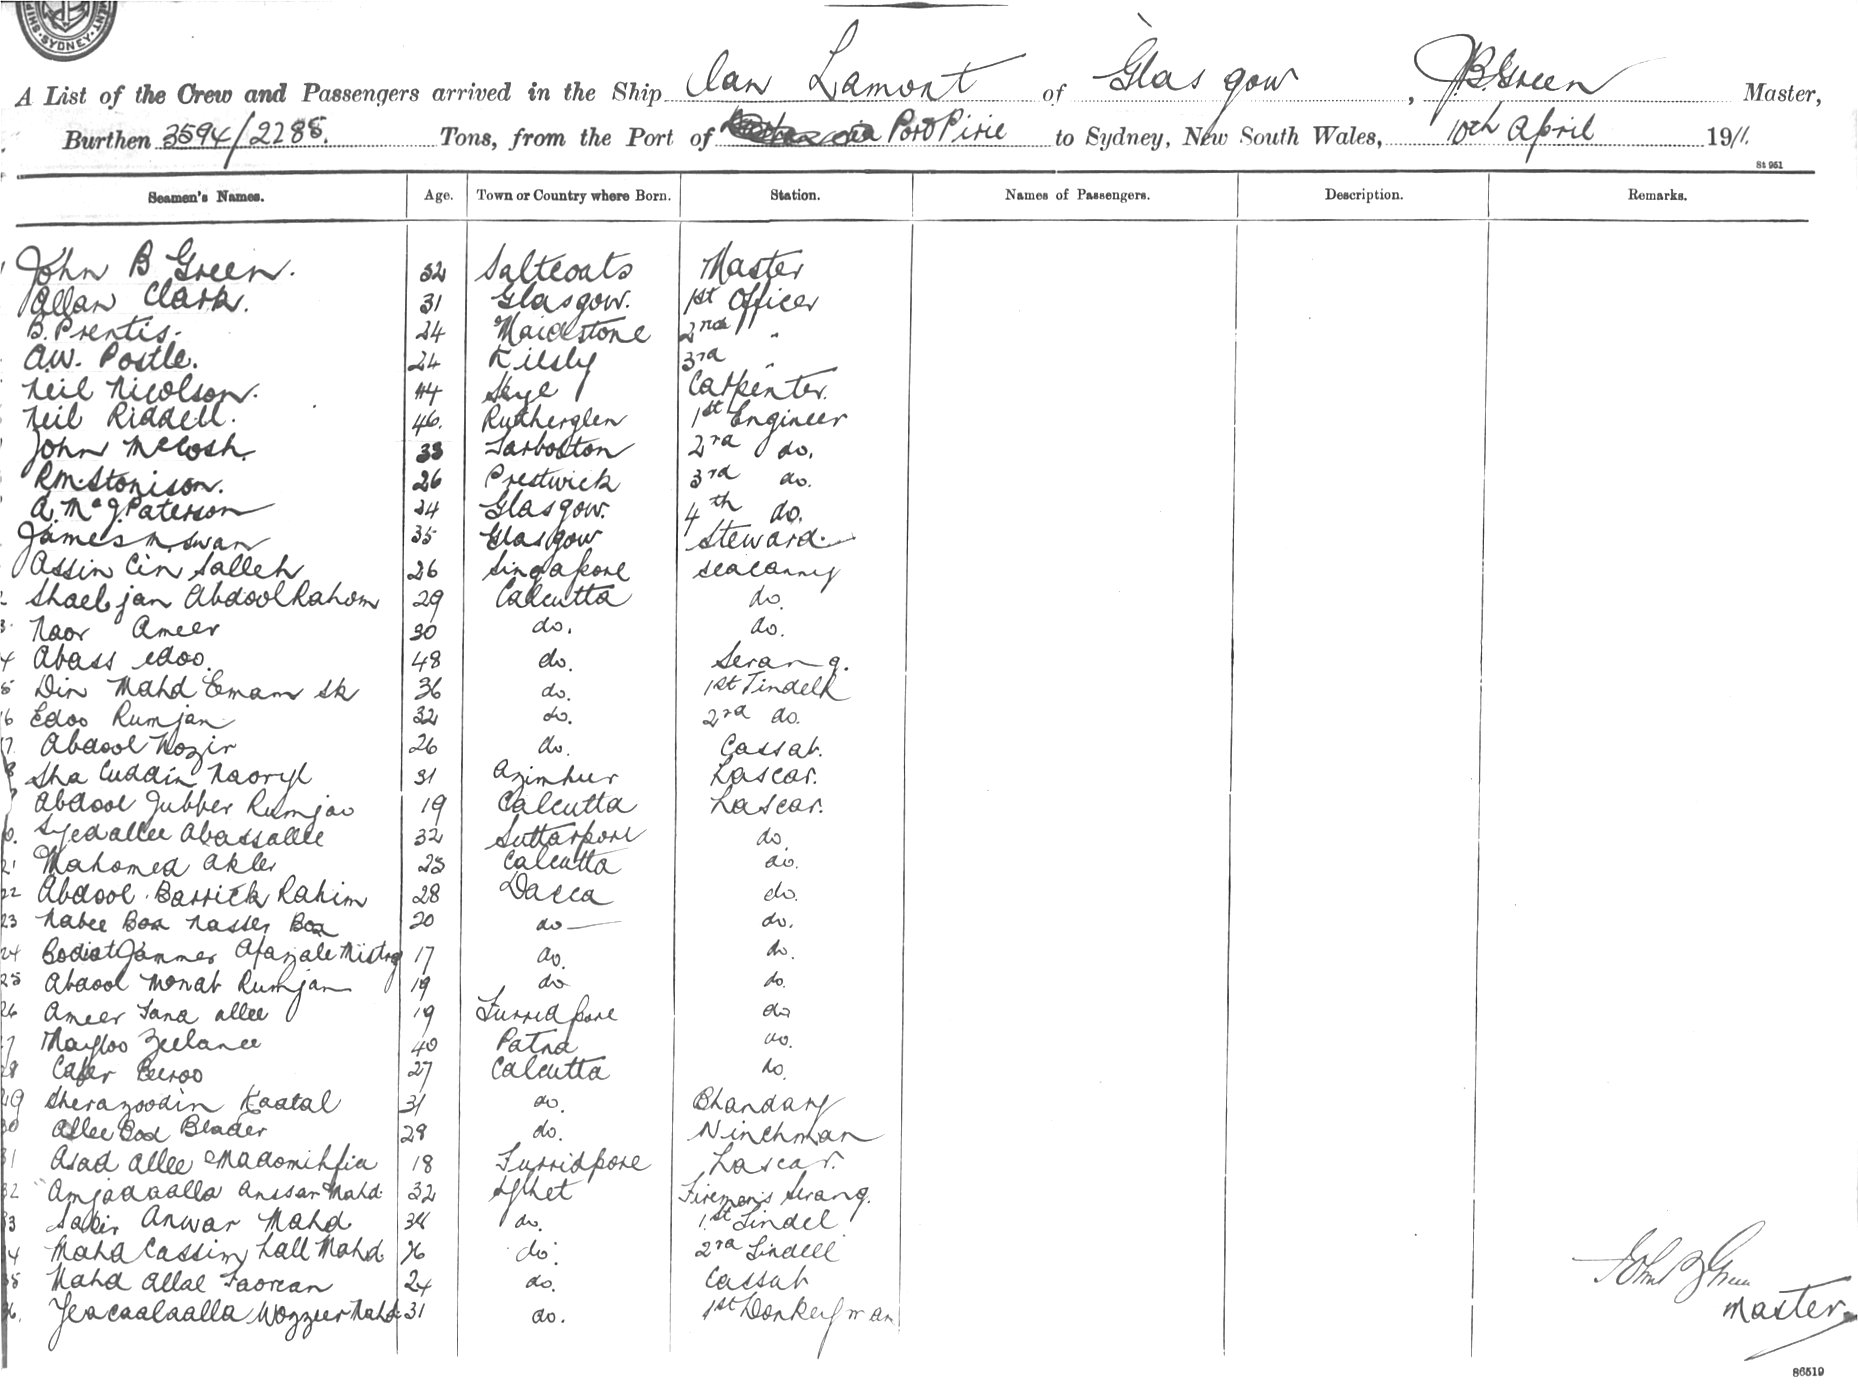 SYDNEY
A List of the Crew and Passengers arrived in the Ship Clan Lamont of Glasgow, J.B. Green Master,
Burthen 3594/2288. Tons, from the Port of via Port Pirie to Sydney, New South Wales, 10th April 1911.
St 951
Seamen's Names. Age. Town or Country where Born. Station. Names of Passengers. Description. Remarks.
John B Green. 32 Saltcoats Master
Allan Clark. 31 Glasgow. 1st Officer
B. Prentis. 24 Maidstone 2nd "
A.W. Postle. 24 Kilsby 3rd "
Neil Nicolson. 44 Skye Carpenter.
Neil Riddell. 46. Rutherglen 1st Engineer
John McCosh. 33 Tarbolton 2nd do.
R.M. Stonison. 26 Prestwick 3rd do.
A. McJ. Paterson 24 Glasgow. 4th do.
James M. Swan 35 Glasgow Steward.
Assin Cin Salleh 26 Singapore Seacunny
2 Shaeb jan Abdool Rahom 29 Calcutta do.
3 Naor Ameer 30 do. do.
4 Abass Edoo. 48 do. Serang.
5 Din Mahd Emam Sk 36 do. 1st Tindell
16 Edoo Rumjan 32 do. 2nd do.
7. Abdool Wozir 26 do. Cassab.
8 Sha Cuddin 31 Lascar.
Abdool Jubber Rumjao 19 Calcutta Lascar.
0. Syedallee Abassallee 32 Suttarpore do.
21 Mahomed Akler 25 Calcutta do.
22 Abdool Barrick Rahim 28 Dacca do.
23 Nabee Box Nasser Box 20 do do.
24 Afazale Mistry 17 do. do.
25 Abdool Monab Rumjan 19 do do.
26 Ameer Tana allee 19 Furridpore do
7 Zeelanee 40 Patna do.
28 Cafer Beeroo 27 Calcutta do.
29 Sherazoodin Kaatal 31 do. Bhandary
30 Allee Box Beader 29 do. Winchman
31 Asad Allee 18 Furridpore Lascar.
32 Amjadaalla Anssar Mahd. 32 Sylhet Fireman's Serang.
33 Sabir Anwar Mahd 34 do. 1st Tindel
4 Mahd Cassim Lall Mahd 36 do. 2nd Tindell
35 Mahd Allal Taorean 24 do. Cassab
36. Yeacaalaalla Wozzeer Mahd. 31 do. 1st Donkeyman
John B Green
Master
86519